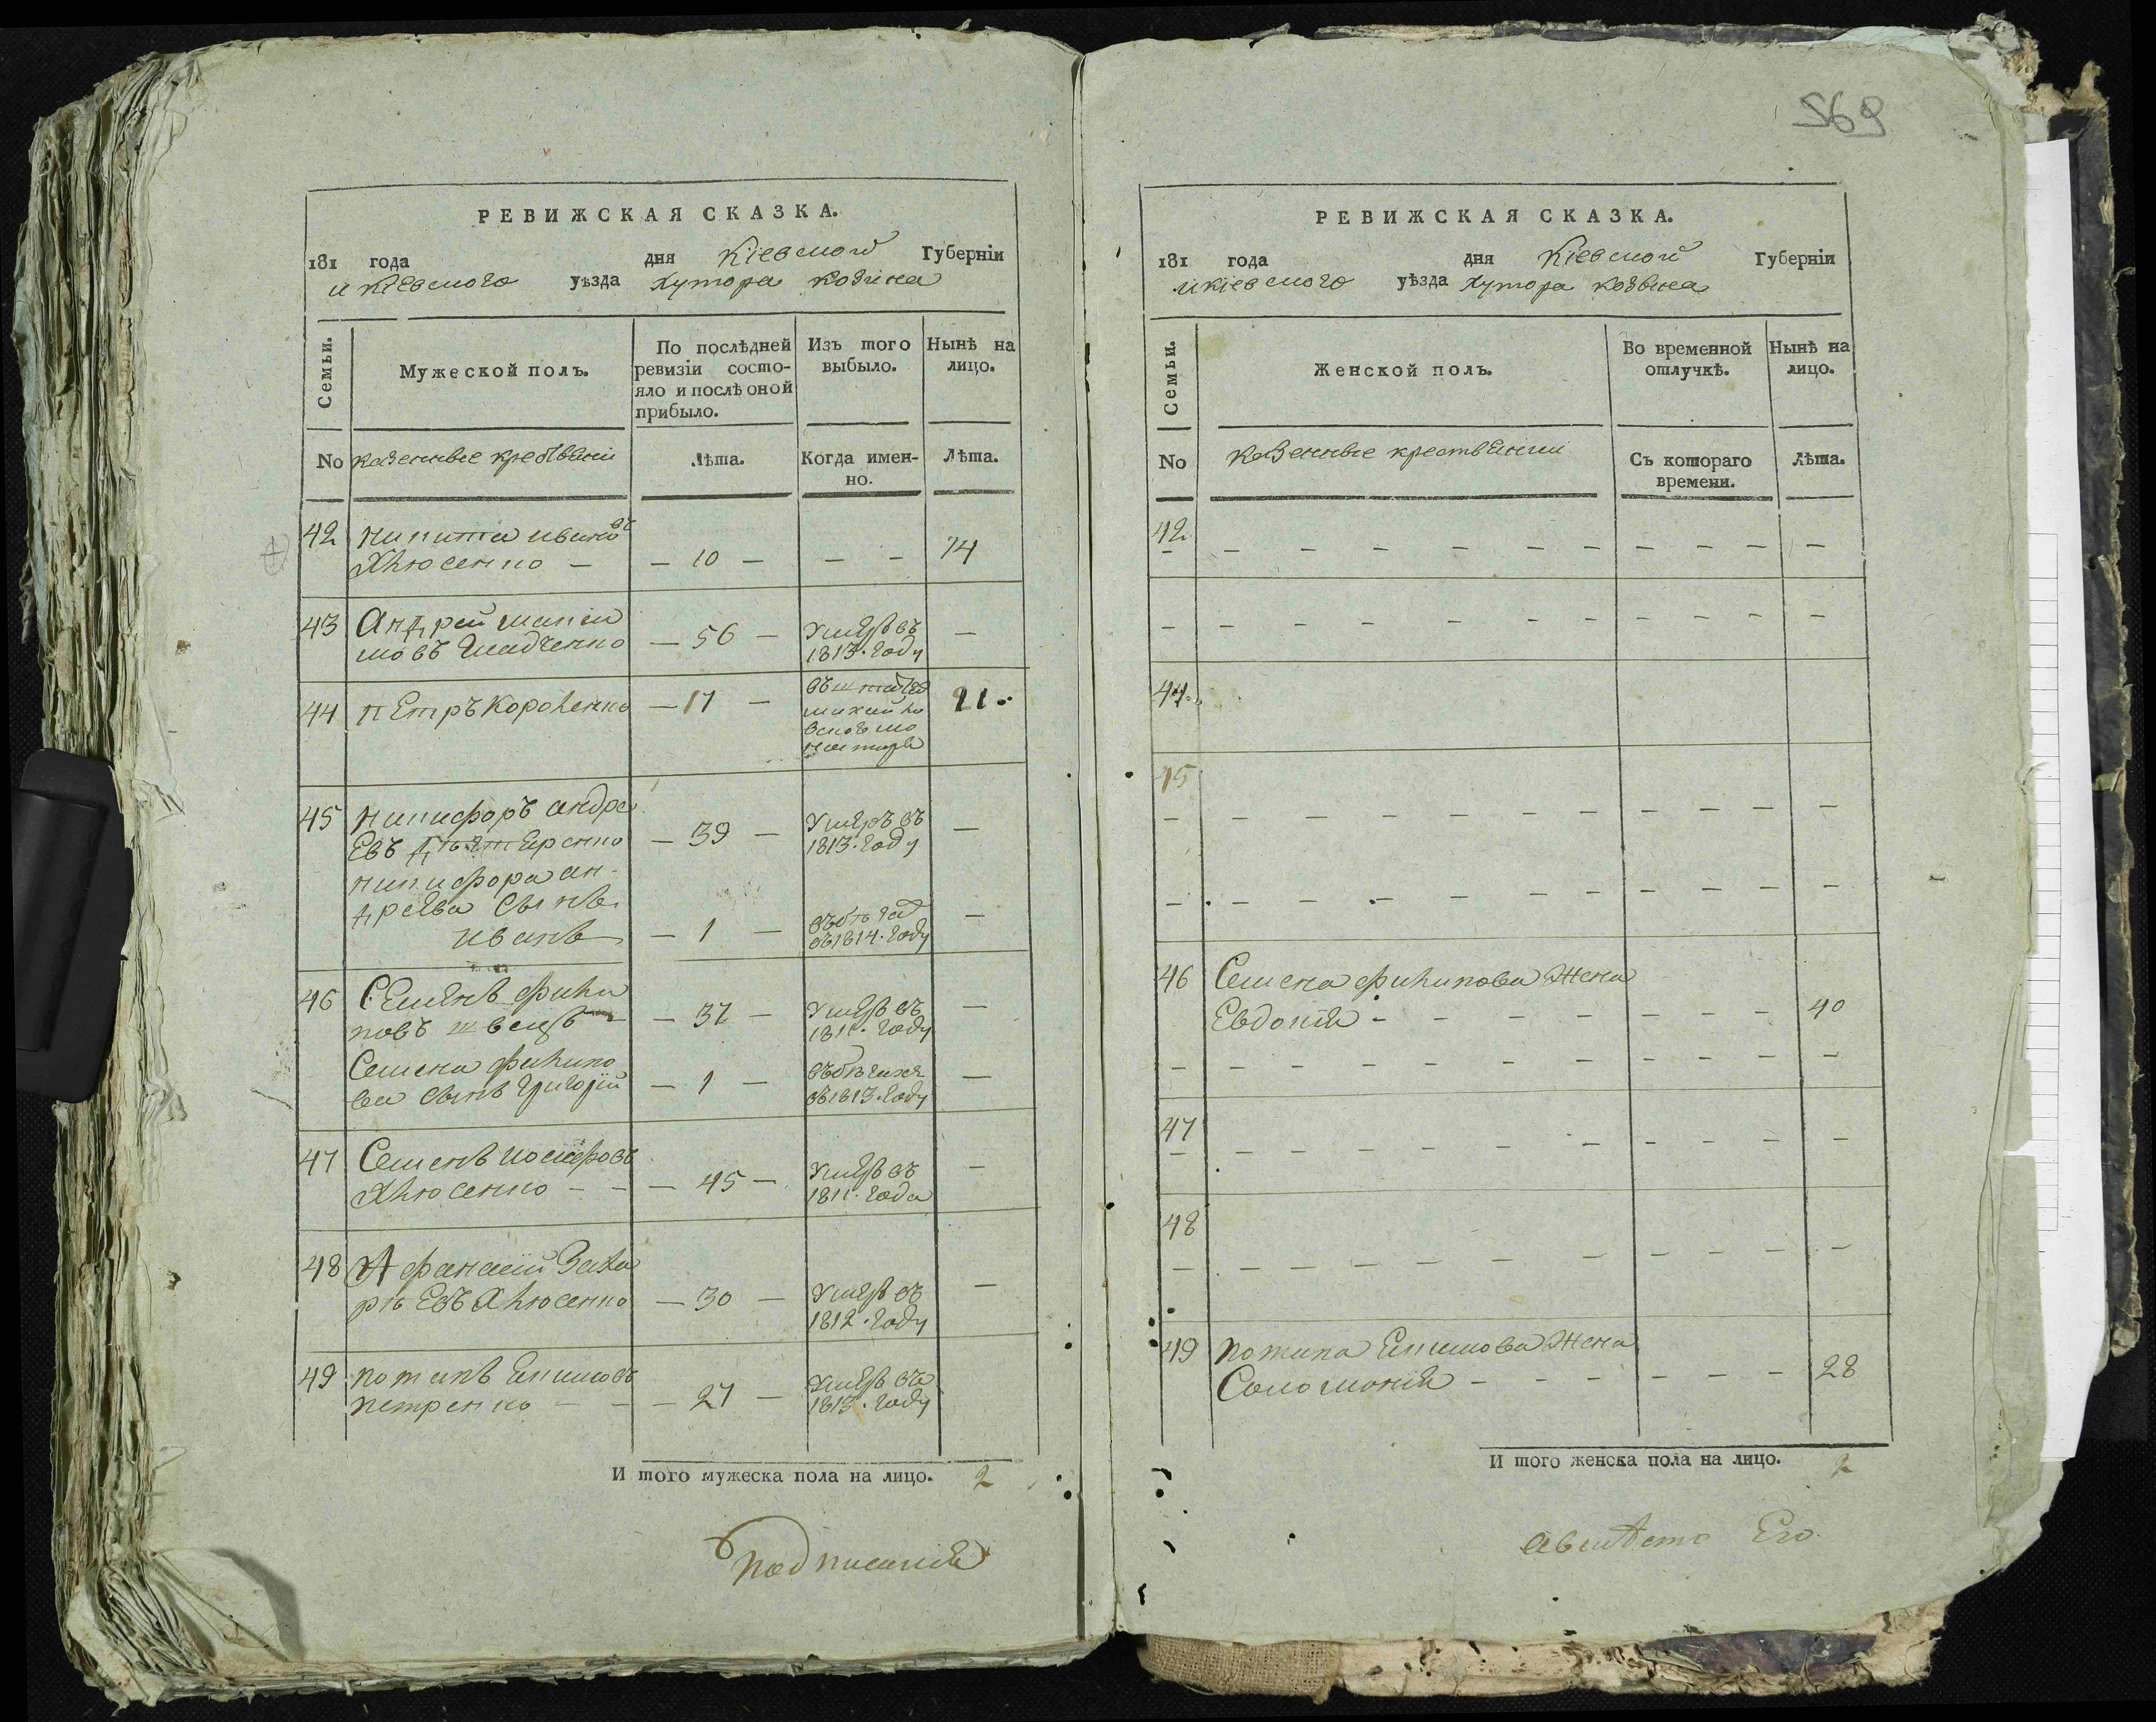 569
РЕВИЖСКАЯ СКАЗКА.
181 года дня Кіевской Губерніи
и кіевского уѣзда хутора козина
Семьи. Мужеской полъ. По послѣдней ревизіи состояло и послѣ оной прибыло. Изъ того выбыло. Нынѣ на лицо.
No казенные Лѣта. Когда именно. Лѣта.
42 никита ивановъ
— 10 — — — 14
43 Андрей
— 56 — умеръ въ —
1813. году
44 петръ короленко — 17 — 21.
45 никифоръ андре
евъ — 39 — умеръ въ —
1813. году
никифора ан-
дреева сынъ
иванъ — 1 — въ 1814. году —
46 Семенъ фили
повъ швецъ — 37 — умеръ въ —
1811. году
Семена филипо
ва сынъ григорій — 1 — въ 1813. году —
47 Семенъ иосифовъ
— 45 — умеръ въ —
1811. года
48 Афанасій Заха
рьевъ — 30 — умеръ въ —
1812. году
49 потапъ екимовъ
петренко — — — 27 — умеръ въ
1813. году
И того мужеска пола на лицо. 2
РЕВИЖСКАЯ СКАЗКА.
181 года дня Кіевской Губерніи
и кіевского уѣзда хутора козина
Семьи. Женской полъ. Во временной отлучкѣ. Нынѣ на лицо.
No казенные Съ котораго времени. Лѣта.
42
44.
45
46 Семена филипова жена
Евдокія — 40
47
48
49 потапа екимова жена
Соломонія — 28
И того женска пола на лицо. 2
Его